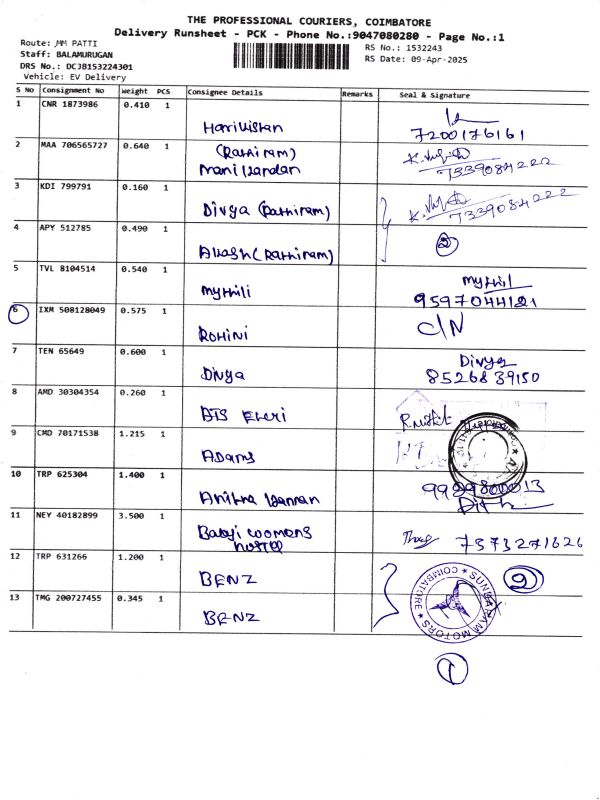 THE PROFESSIONAL COURIERS, COIMBATORE
Delivery Runsheet - PCK - Phone No.:9047080280 - Page No.:1
Route: ,MM PATTI
Staff: BALAMURUGAN
DRS No.: DCJB153224301
Vehicle: EV Delivery
RS No.: 1532243
RS Date: 09-Apr-2025
S No Consignment No Weight PCS Consignee Details Remarks Seal & Signature
1 CNR 1873986 0.410 1
Harikistan 7200176161
2 MAA 706565727 0.640 1 (Rathiram)
Manikandan 7339084222
3 KDI 799791 0.160 1
Divya (Rathiram) 7339084222
4 APY 512785 0.490 1
Akash (Rathiram) 2
5 TVL 8104514 0.540 1
Mythili Mythil
9597044121
6 IXM 508128049 0.575 1
Rohini C/N
7 TEN 65649 0.600 1
Divya Divya
8526839150
8 AMD 30304354 0.260 1
9 CMD 70171538 1.215 1
Adams
10 TRP 625304 1.400 1
Anitha Kannan 9989800013
11 NEY 40182899 3.500 1
Babyji womens
hostel 7373271626
12 TRP 631266 1.200 1
BENZ 2
13 TMG 200727455 0.345 1
BENZ
SUNDARAM MOTORS * COIMBATORE *
1